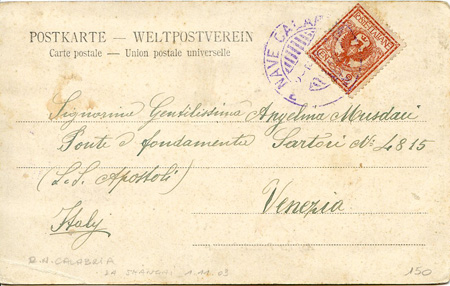 POSTKARTE — WELTPOSTVEREIN
Carte postale — Union postale universelle
NAVE CALAB
POSTE ITALIANE
Signorina Gentilissima Angelina Musdaci
Ponte e fondamenta Sartori No 4815
(S.S. Apostoli)
Venezia
Italy
R.N. CALABRIA
DA SHANGAI 1.11.03
150